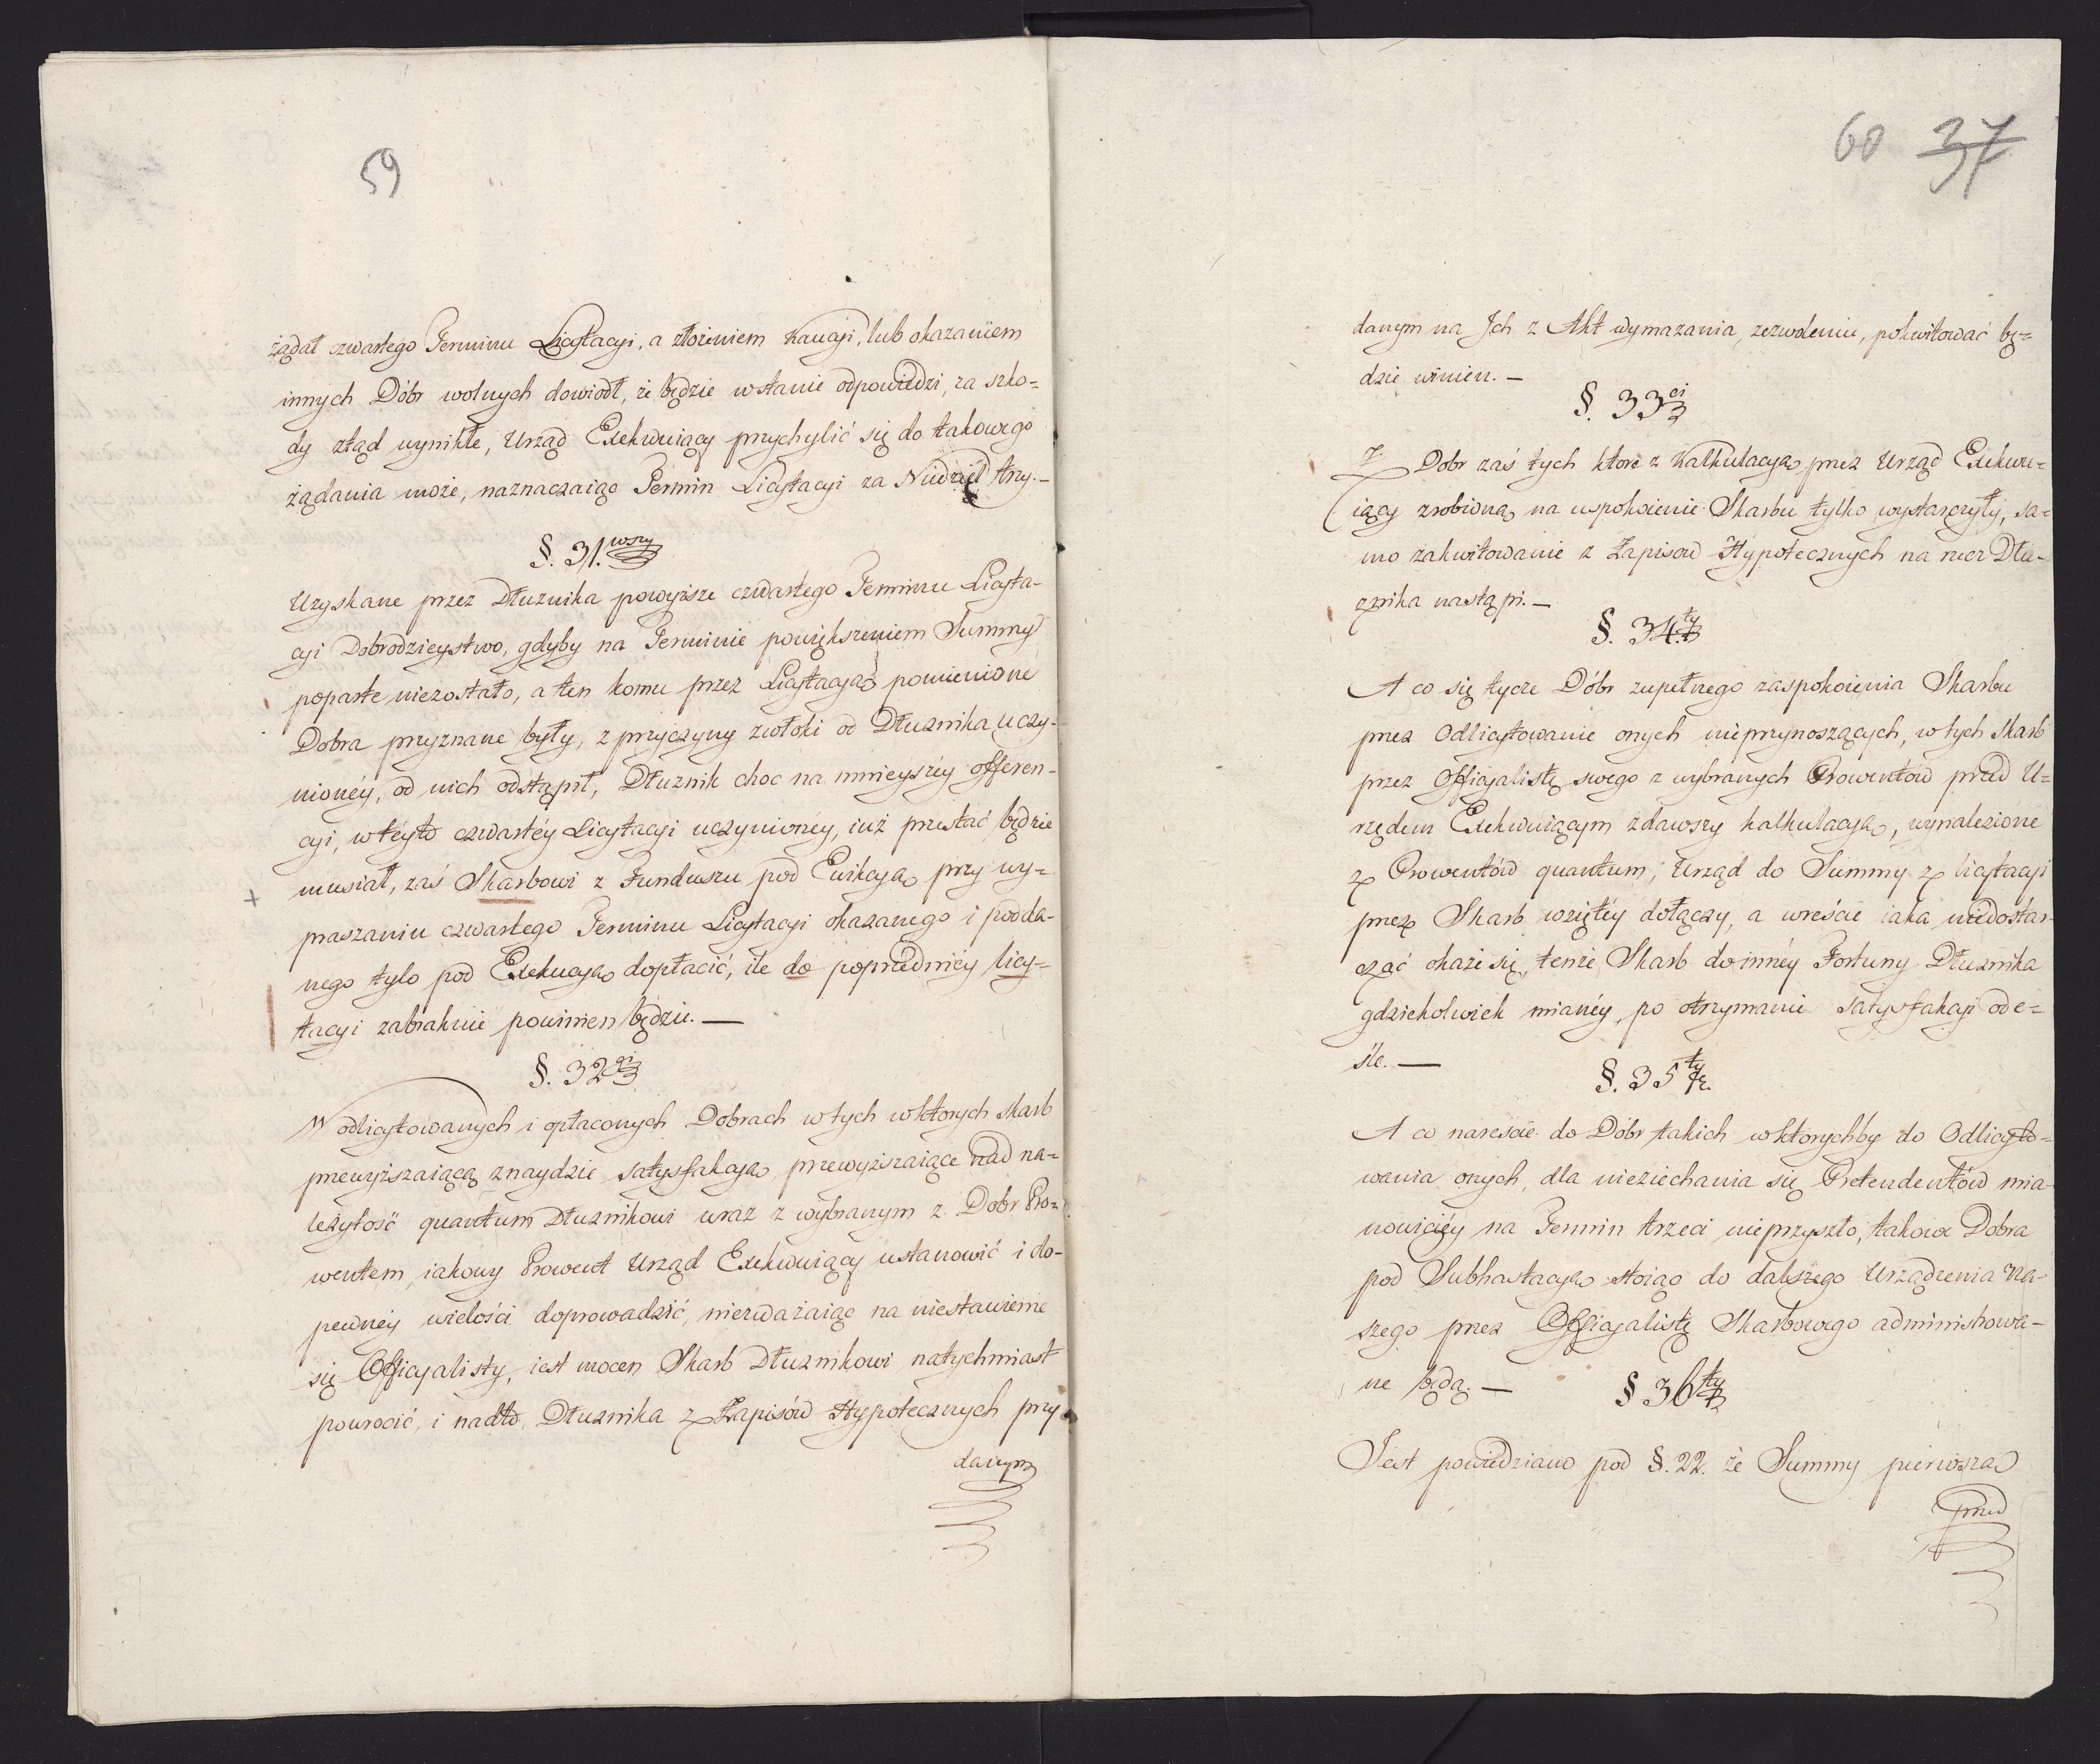 59
żądał czwartego Terminu Licytacyi, a złożeniem Kaucyi, lub okazaniem
innych Dóbr wolnych dowiodł, że będzie wstanie odpowiedzi, za szko=
dy ztąd wynikłe, Urząd Exekwuiący przychylić się do takowego
żądania może, naznaczaiąc Termin Licytacyi za Niedziel trzy.—
§. 31.wszy
Uzyskane przez Dłuznika powyższe czwartego Terminu Licyta-
cyi Dobrodzieystwo, gdyby na Terminie powiększeniem Summy
poparte niezostało, a ten komu przez Licytacyą pomienione
Dobra przyznane były, z przyczyny zwłoki od Dłuznika uczy-
nionéy, od nich odstąpił, Dłuznik choc na mnieyszéy offeren-
cyi, wtéyto czwartéy Licytacyi uczynioney, iuż przestać będzie
musiał, zaś Skarbowi z Funduszu pod Ewikcyą przy wy=
praszaniu czwartego Terminu Licytacyi okazanego i podda-
nego tylo pod Exekucyą dopłacić, ile do poprzedniéy licy=
tacyi zabraknie powinien będzie.—
§. 32gi
W odlicytowanych i opłaconych Dobrach wtych wktorych skarb
przewyższaiącą znaydzie satysfakcyą, przewyższaiące nad na=
leżytość quantum Dłuznikowi wraz z wybranym z Dobr Pro=
wentem iakowy Prowent Urząd Exekwuiący ustanowić i do-
pewnéy wielości doprowadzić, niezważaiąc na niestawienie
się Officyalisty, iest mocen Skarb Dłuznikowi natychmiast
powrocić, i nadto, Dłuznika z Zapisów Hypotecznych przy
danym
60 37
danym na Ich z Akt wymazania, zezwoleniu, pokwitować bę=
dzie winien.—
§. 33ci
Z Dobr zaś tych ktore z Kalkulacyą przez Urząd Exekwu=
iący zrobioną na uspokoienie Skarbu tylko wystarczyły, sa=
mo zakwitowanie z Zapisow Hypotecznych na rzecz Dłu-
znika nastąpi.—
§. 34.ty
A co się tycze Dóbr zupełnego zaspokoienia Skarbu
przez Odlicytowanie onych nieprzynoszących, wtych skarb
przez Officyalistę swego z wybranych Prowentów przed U=
rzędem Exekwuiącym zdawszy kalkulacyą, wynalezione
z Prowentów quantum, Urząd do Summy z licytacyi
przez Skarb wziętéy dołączy, a wreście iaka niedostar-
czać okaże się, tenże Skarb do innéy Fortuny Dłuznika
gdziekolwiek mianéy, po otrzymanie satysfakcyi ode=
śle.—
§. 35ty
A co nareście do Dóbr takich wktorychby do Odlicyto=
wania onych, dla nieziechania się Pretendentów mia-
nowiciéy na Termin trzeci nieprzyszło, takowe Dobra
pod Subhastacyą stoiąc do dalszego Urządzenia Na-
szego przez Officyalistę Skarbowego administrowa-
ne będą.—
§ 36ty
Jest powiedziano pod §. 22. że Summy pierwsza
przed